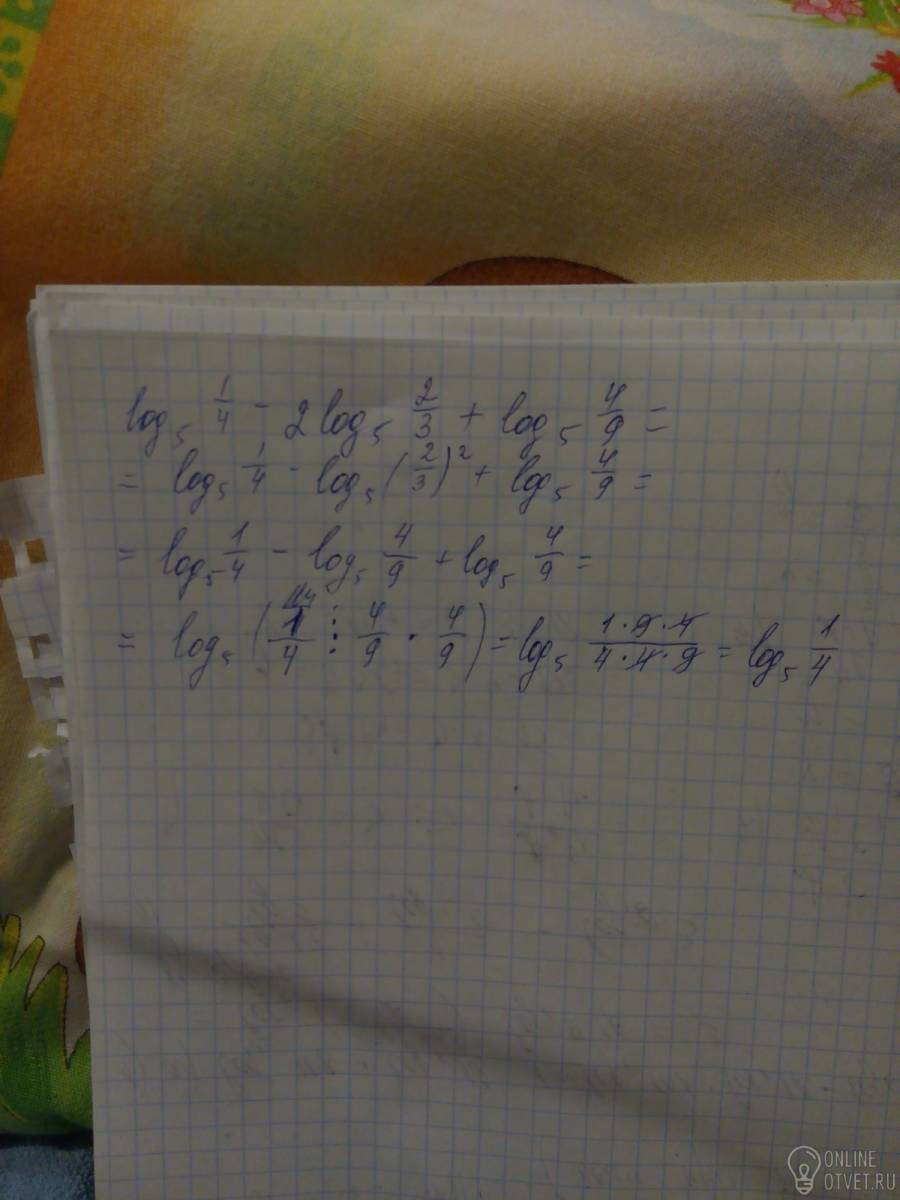 log₅ 1/4 - 2 log₅ 2/3 + log₅ 4/9 =
= log₅ 1/4 - log₅ (2/3)² + log₅ 4/9 =
= log₅ 1/4 - log₅ 4/9 + log₅ 4/9 =
= log₅ (1/4 : 4/9 · 4/9) = log₅ (1·9·4)/(4·4·9) = log₅ 1/4
ONLINE
OTVET.RU